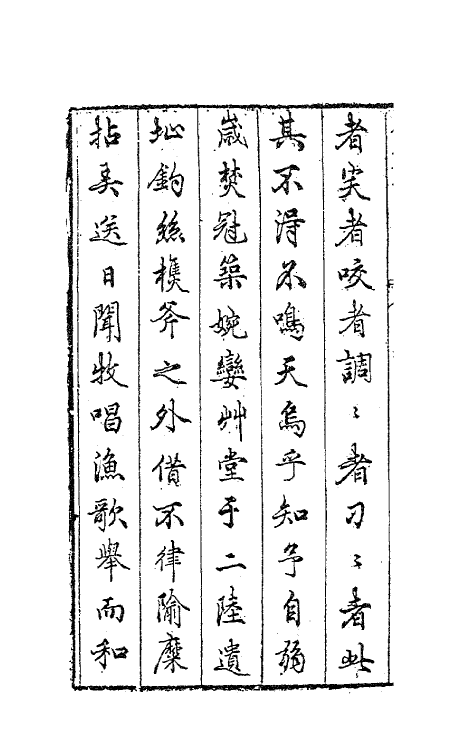 者宎者咬者調〻者刁〻者此
其不得不鳴天烏乎知予自弱
嵗焚冠築婉孌艸堂于二陸遺
址釣絲樵斧之外借不律隃糜
拈弄送日聞牧唱漁歌舉而和